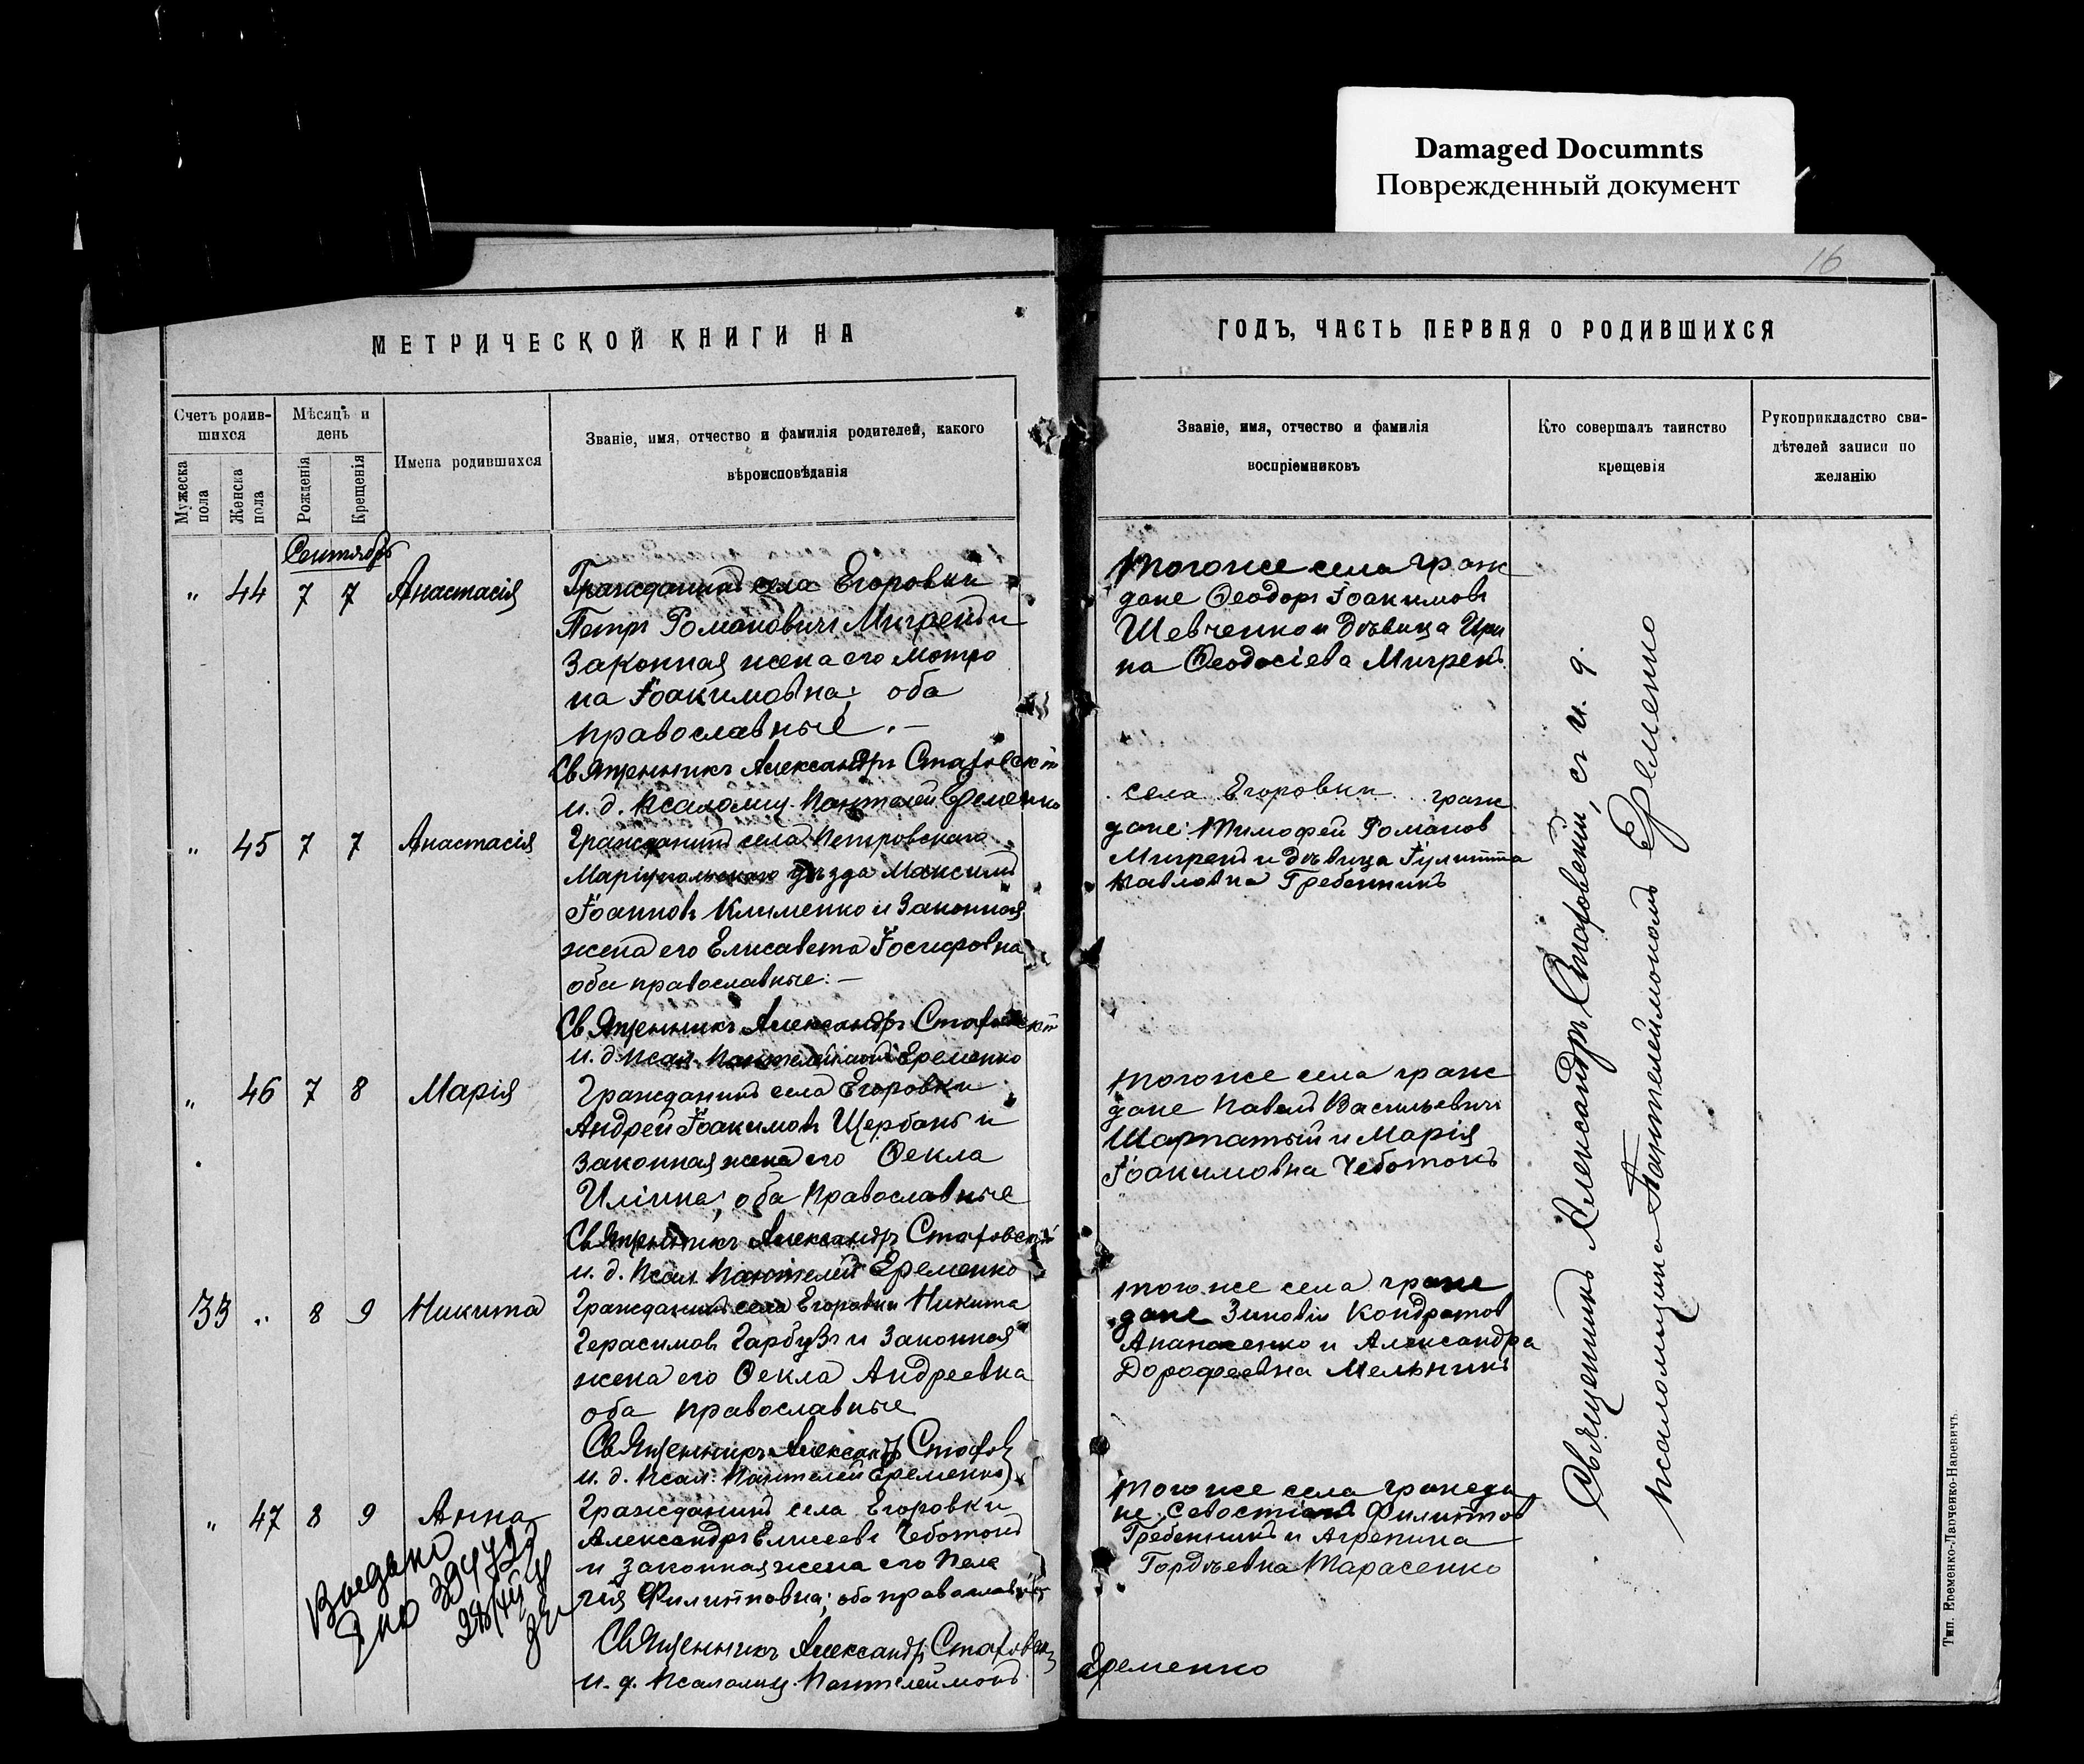 Damaged Documnts
Поврежденный документ
16
МЕТРИЧЕСКОЙ КНИГИ НА
ГОДЪ, ЧАСТЬ ПЕРВАЯ О РОДИВШИХСЯ
Счетъ родив-
шихся
Мужеска
пола
Женска
пола
Мѣсяцъ и
день
Рожденія
Крещенія
Имена родившихся
Званіе, имя, отчество и фамилія родителей, какого
вѣроисповѣданія
Званіе, имя, отчество и фамилія
воспріемниковъ
Кто совершалъ таинство
крещенія
Рукоприкладство сви-
дѣтелей записи по
желанію
Сентябрь
" 44 7 7 Анастасія
Гражданинъ села Егоровки
Петръ Романовичъ Мигренъ и
законная жена его Мотро
на Іоакимовна; оба
православные.—
Священникъ Александръ Стаховскій
и. д. псаломщ. Пантелей Еременко
Того же села граж
дане Ѳеодоръ Іоакимовъ
Шевченко и дѣвица Ири
на Ѳеодосіева Мигренъ
" 45 7 7 Анастасія
Гражданинъ села Петровскаго
Маріупольскаго уѣзда Максимъ
Іоанновъ Клименко и законная
жена его Елисавета Іосифовна
оба православные.—
Священникъ Александръ Стаховскій
и. д. псал. Пантелеймонъ Еременко
села Егоровки граж
дане: Тимофей Романов
Мигренъ и дѣвица Іулитта
Павловна Гребенникъ
" 46 7 8 Марія
Гражданинъ села Егоровки
Андрей Іоакимовъ Щербанъ и
законная жена его Ѳекла
Иліина; оба православные
Священникъ Александръ Стаховскій
и. д. псал. Пантелей Еременко
Того же села граж
дане Павелъ Васильевичъ
Шарпатый и Марія
Іоакимовна Чеботокъ
33 " 8 9 Никита
Гражданинъ села Егоровки Никита
Герасимовъ Гарбузъ и законная
жена его Ѳекла Андреевна
оба православные
Священникъ Александръ Стахов
и. д. псал. Пантелей Еременко
того же села граж
дане Зиновій Кондратов
Апанасенко и Александра
Дорофеевна Мельникъ
" 47 8 9 Анна
Гражданинъ села Егоровки
Александръ Елисеевъ Чеботокъ
и законная жена его Пела
гія Филипповна; оба православн
Священникъ Александръ Стаховск
и. д. псаломщ. Пантелеймонъ Еременко
Того же села гражда
не: Севостіанъ Филиппов
Гребенникъ и Агрепина
Гордѣевна Тарасенко
Выдано
Священникъ Александръ Стаховскій, съ и. д.
псаломщика Пантелеймономъ Еременко
Тип. Еременко-Лапченко-Наревичъ.